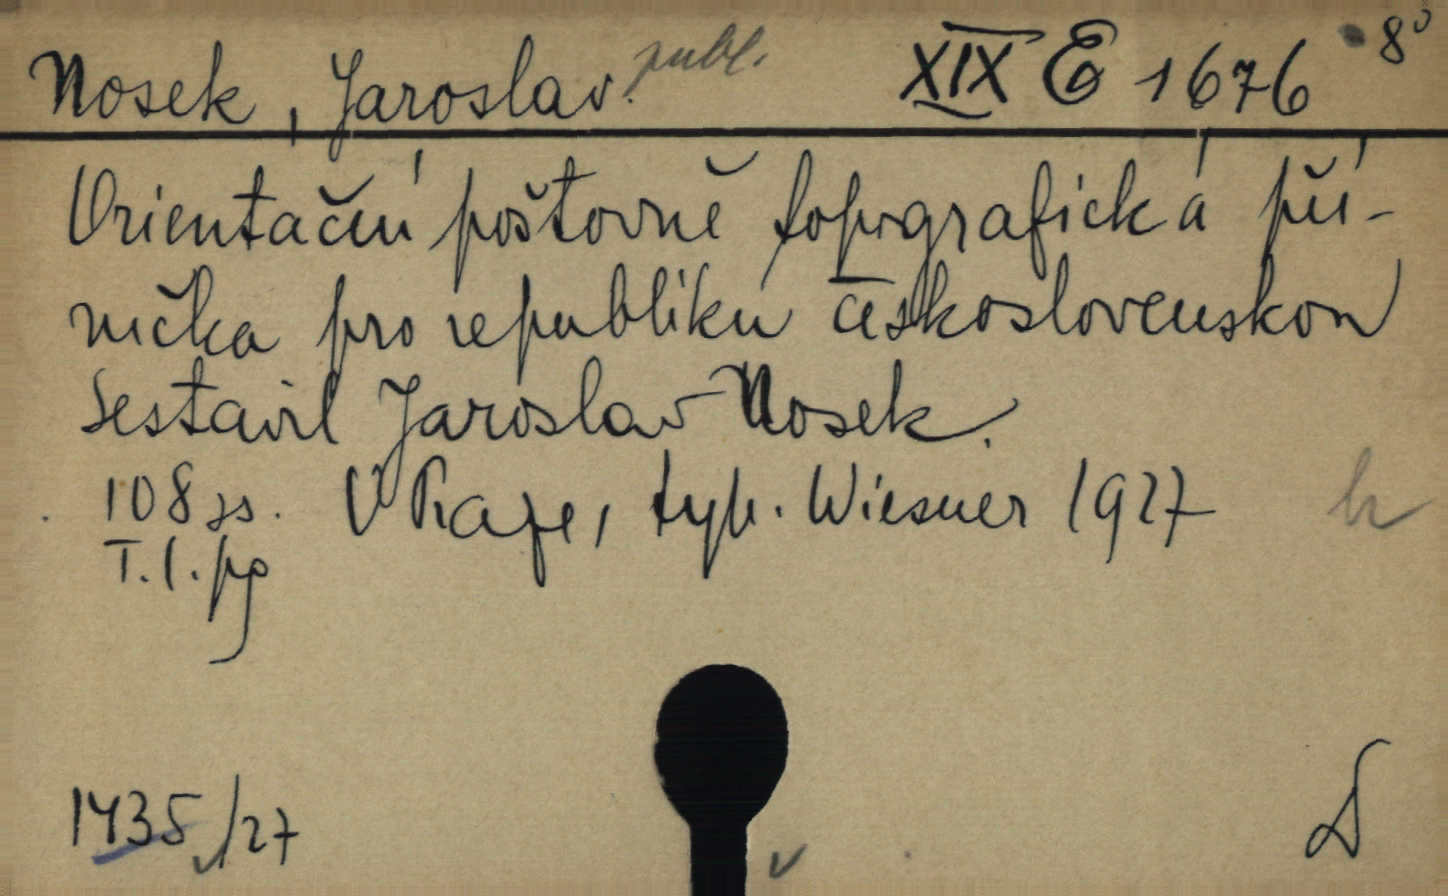 Nosek, Jaroslav. publ. XIX E 1676 8°
Orientační poštovně topografická pří-
ručka pro republiku československou
Sestavil Jaroslav Nosek.
108 ss. V Praze, typ. Wiesner 1927
T. l. pg
1435/27